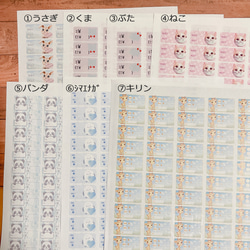 ①うさぎ
②くま
③ぶた
④ねこ
⑤パンダ
⑥ｼﾏｴﾅｶﾞ
⑦キリン